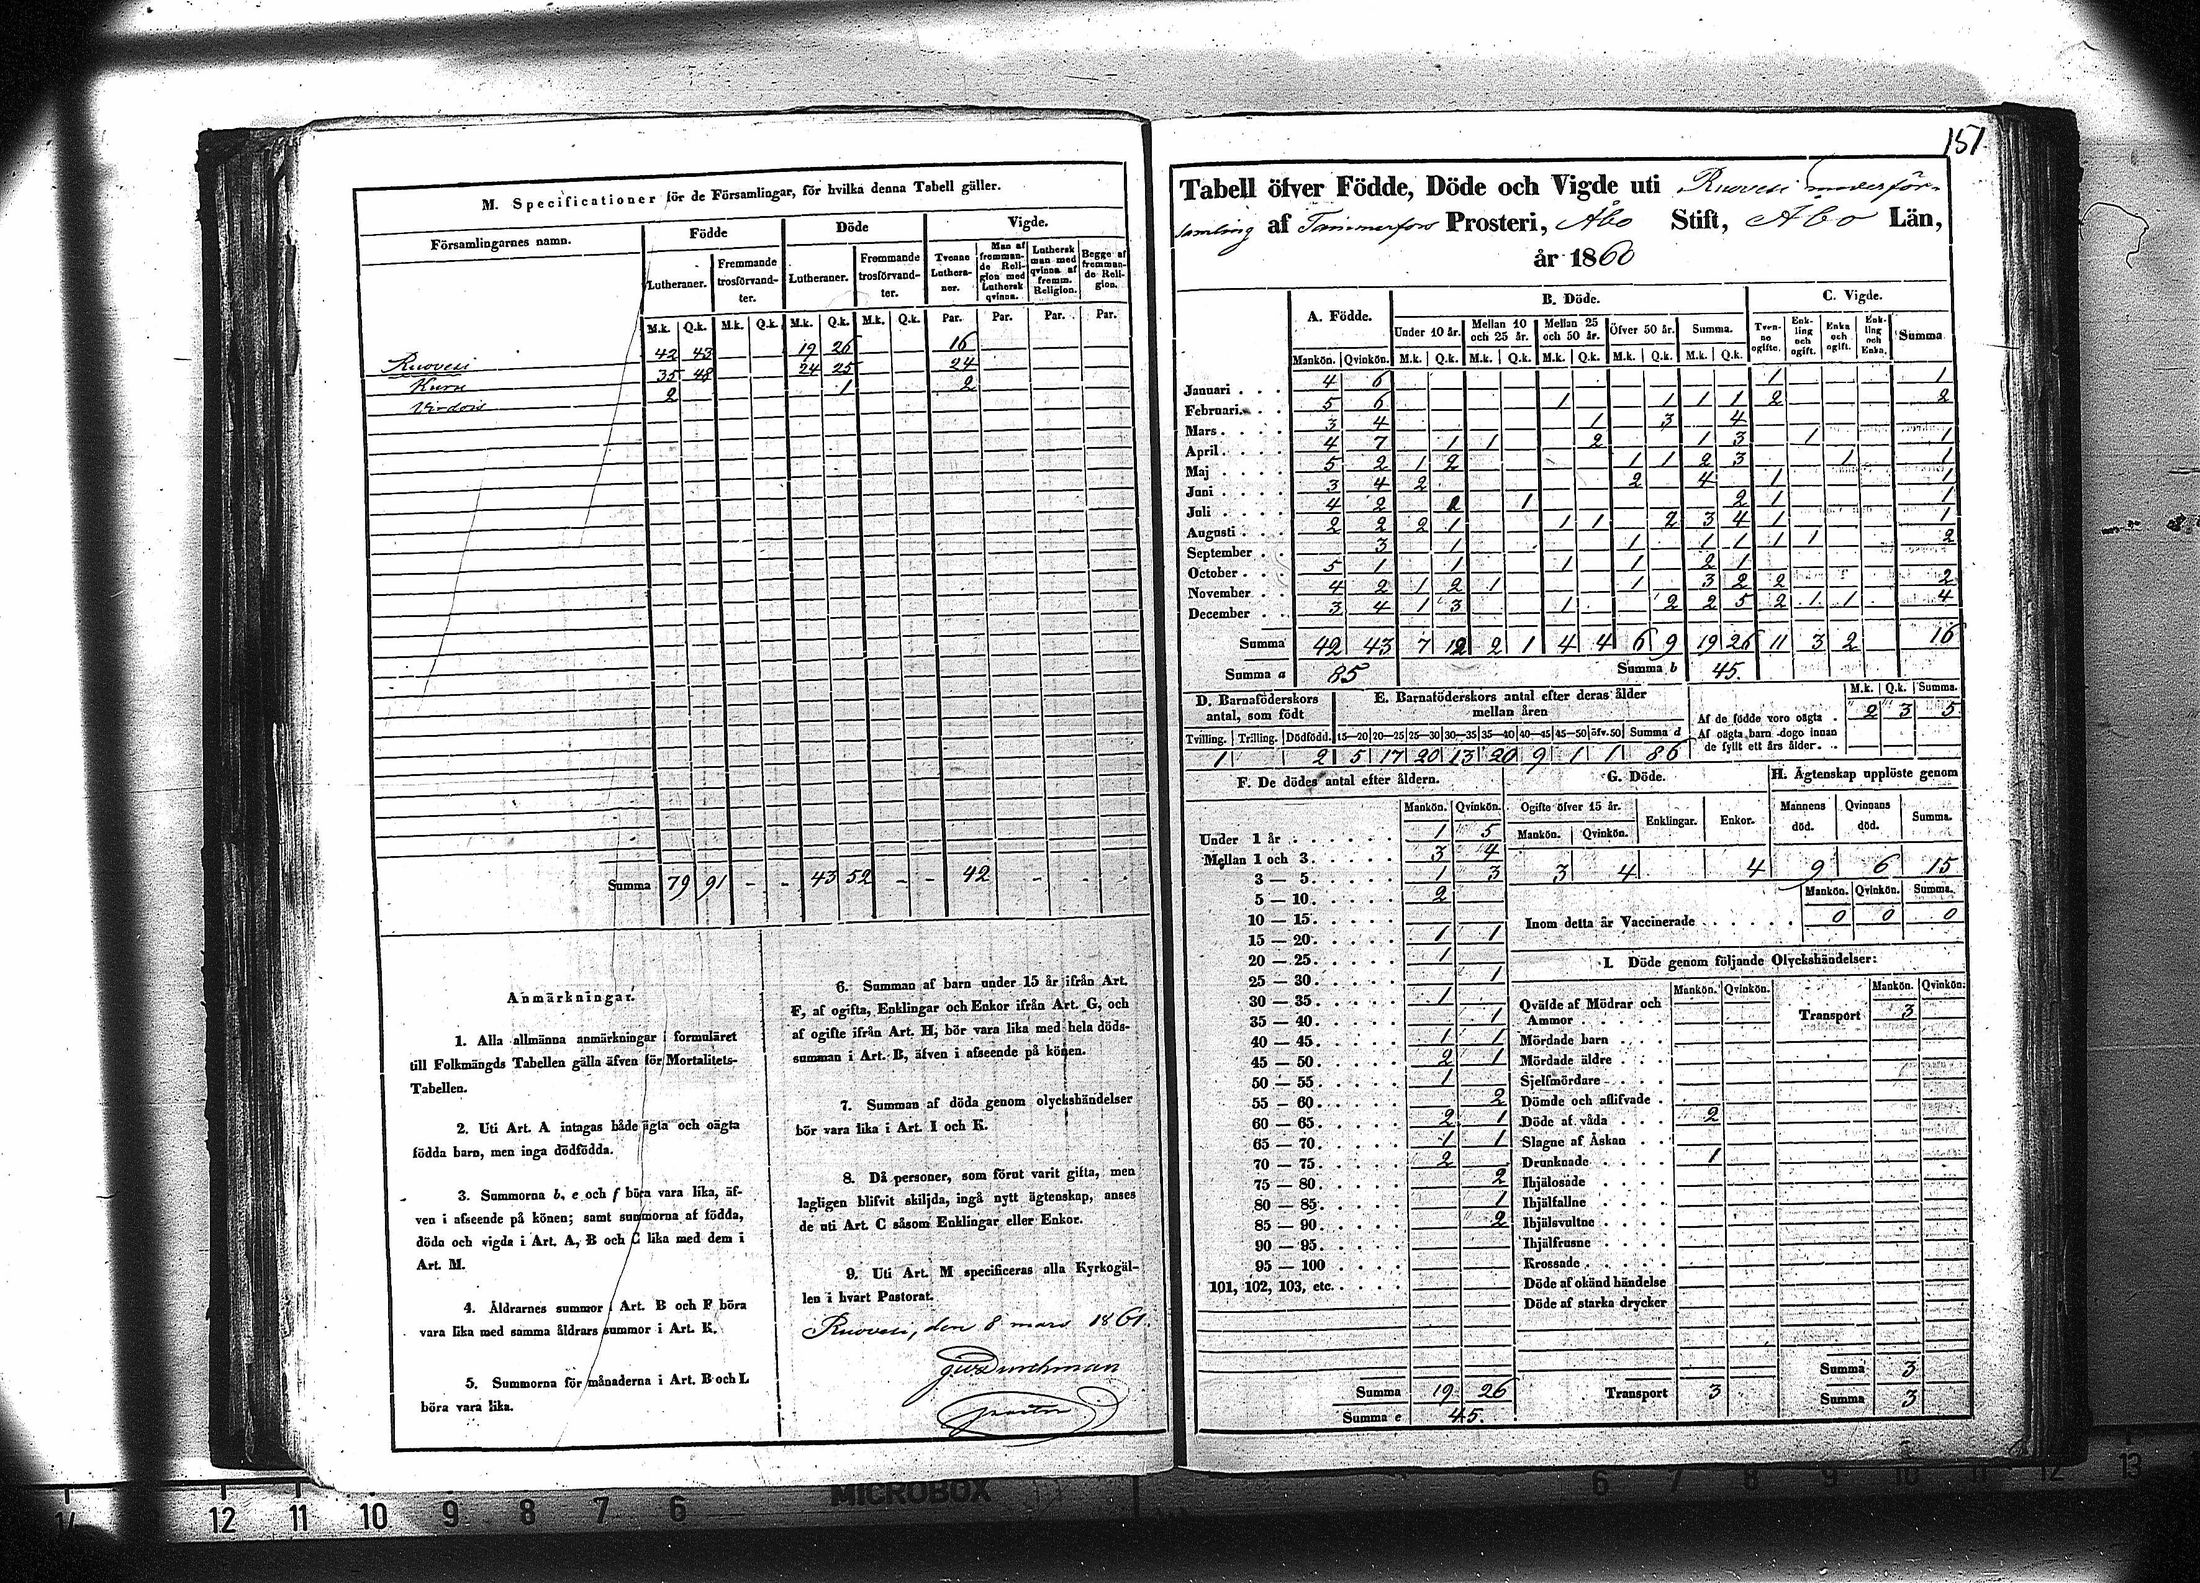 M. Specificationer för de Församlingar, för hvilka denna Tabell gäller.
Församlingarnes namn. Födde Döde Vigde.
Lutheraner. Fremmande trosförvandter. Lutheraner. Fremmande trosförvandter. Tvenne Lutheraner. Man af fremmande Religion med Luthersk qvinna. Luthersk man med qvinna af fremm. Religion. Begge af fremmande Religion.
M.k. Q.k. M.k. Q.k. M.k. Q.k. M.k. Q.k. Par. Par. Par. Par.
Ruovesi 42 43 19 26 16
Kuru 35 48 24 25 24
Virdois 2 1 2
Summa 79 91 - - 43 52 - - 42 - - -
Anmärkningar.
1. Alla allmänna anmärkningar i formuläret
till Folkmängds Tabellen gälla äfven för Mortalitets-
Tabellen.
2. Uti Art. A intagas både ägta och oägta
födda barn, men inga dödfödda.
3. Summorna b, e och f böra vara lika, äf-
ven i afseende på könen; samt summorna af födda,
döda och vigda i Art. A, B och C lika med dem i
Art. M.
4. Åldrarnes summor i Art. B och F böra
vara lika med samma åldrars summor i Art. K.
5. Summorna för månaderna i Art. B och L
böra vara lika.
6. Summan af barn under 15 år ifrån Art.
F, af ogifta, Enklingar och Enkor ifrån Art. G, och
af ogifte ifrån Art. H, bör vara lika med hela döds-
summan i Art. B, äfven i afseende på könen.
7. Summan af döda genom olyckshändelser
bör vara lika i Art. I och K.
8. Då personer, som förut varit gifta, men
lagligen blifvit skiljda, ingå nytt ägtenskap, anses
de uti Art. C såsom Enklingar eller Enkor.
9. Uti Art. M specificeras alla Kyrkogäl-
len i hvart Pastorat.
Ruovesi, den 8 mars 1861.
151.
Tabell öfver Födde, Döde och Vigde uti Ruovesi moderför-
samling af Tammerfors Prosteri, Åbo Stift, Åbo Län,
år 1860
A. Födde. B. Döde. C. Vigde.
Under 10 år. Mellan 10 och 25 år. Mellan 25 och 50 år. Öfver 50 år. Summa. Tvenne ogifte. Enkling och ogift. Enka och ogift. Enkling och Enka. Summa
Mankön. Qvinkön. M.k. Q.k. M.k. Q.k. M.k. Q.k. M.k. Q.k. M.k. Q.k.
Januari 4 6 1 1
Februari 5 6 1 1 1 1 2 2
Mars 3 4 1 3 4
April 4 7 1 1 2 1 3 1 1
Maj 5 2 1 2 1 1 2 3 1 1
Juni 3 4 2 2 4 1 1
Juli 4 2 1 2 1 1
Augusti 2 2 2 1 1 1 2 3 4 1 1
September 3 1 1 1 1 1 1 2
October 5 1 1 1 1 2 1
November 4 2 1 2 1 1 3 2 2 2
December 3 4 1 3 1 2 2 5 2 1 1 4
Summa 42 43 7 12 2 1 4 4 6 9 19 26 11 3 2 16
Summa a 85 Summa b 45.
D. Barnaföderskors antal, som födt
Tvilling. Trilling. Dödfödd.
1 2
E. Barnaföderskors antal efter deras ålder mellan åren
15—20 20—25 25—30 30—35 35—40 40—45 45—50 öfv. 50 Summa d
5 17 20 13 20 9 1 1 86
M.k. Q.k. Summa.
Af de födde voro oägta . 2 3 5
Af oägta barn dogo innan
de fyllt ett års ålder. .
F. De dödes antal efter åldern.
Mankön. Qvinkön.
Under 1 år 1 5
Mellan 1 och 3. 3 4
3 — 5. 1 3
5 — 10. 2
10 — 15.
15 — 20. 1 1
20 — 25. 1
25 — 30. 1
30 — 35. 1
35 — 40. 1
40 — 45. 1 1
45 — 50. 2 1
50 — 55. 1
55 — 60. 2
60 — 65. 2 1
65 — 70. 1 1
70 — 75. 2
75 — 80. 2
80 — 85. 1
85 — 90. 2
90 — 95.
95 — 100
101, 102, 103, etc.
Summa 19 26
Summa e 45.
G. Döde.
Ogifte öfver 15 år. Enklingar. Enkor.
Mankön. Qvinkön.
3 4 4
H. Ägtenskap upplöste genom
Mannens död. Qvinnans död. Summa.
9 6 15
Mankön. Qvinkön. Summa.
Inom detta år Vaccinerade 0 0 0
I. Döde genom följande Olyckshändelser:
Mankön. Qvinkön. Mankön. Qvinkön.
Qväfde af Mödrar och
Ammor Transport 3
Mördade barn
Mördade äldre
Sjelfmördare
Dömde och aflifvade
Döde af våda 2
Slagne af Åskan
Drunknade 1
Ihjälosade
Ihjälfallne
Ihjälsvultne
Ihjälfrusne
Krossade
Döde af okänd händelse
Döde af starka drycker
Summa 3
Transport 3 Summa 3
MICROBOX
14 12 11 10 9 8 7 6
6 7 8 9 10 11 12 13